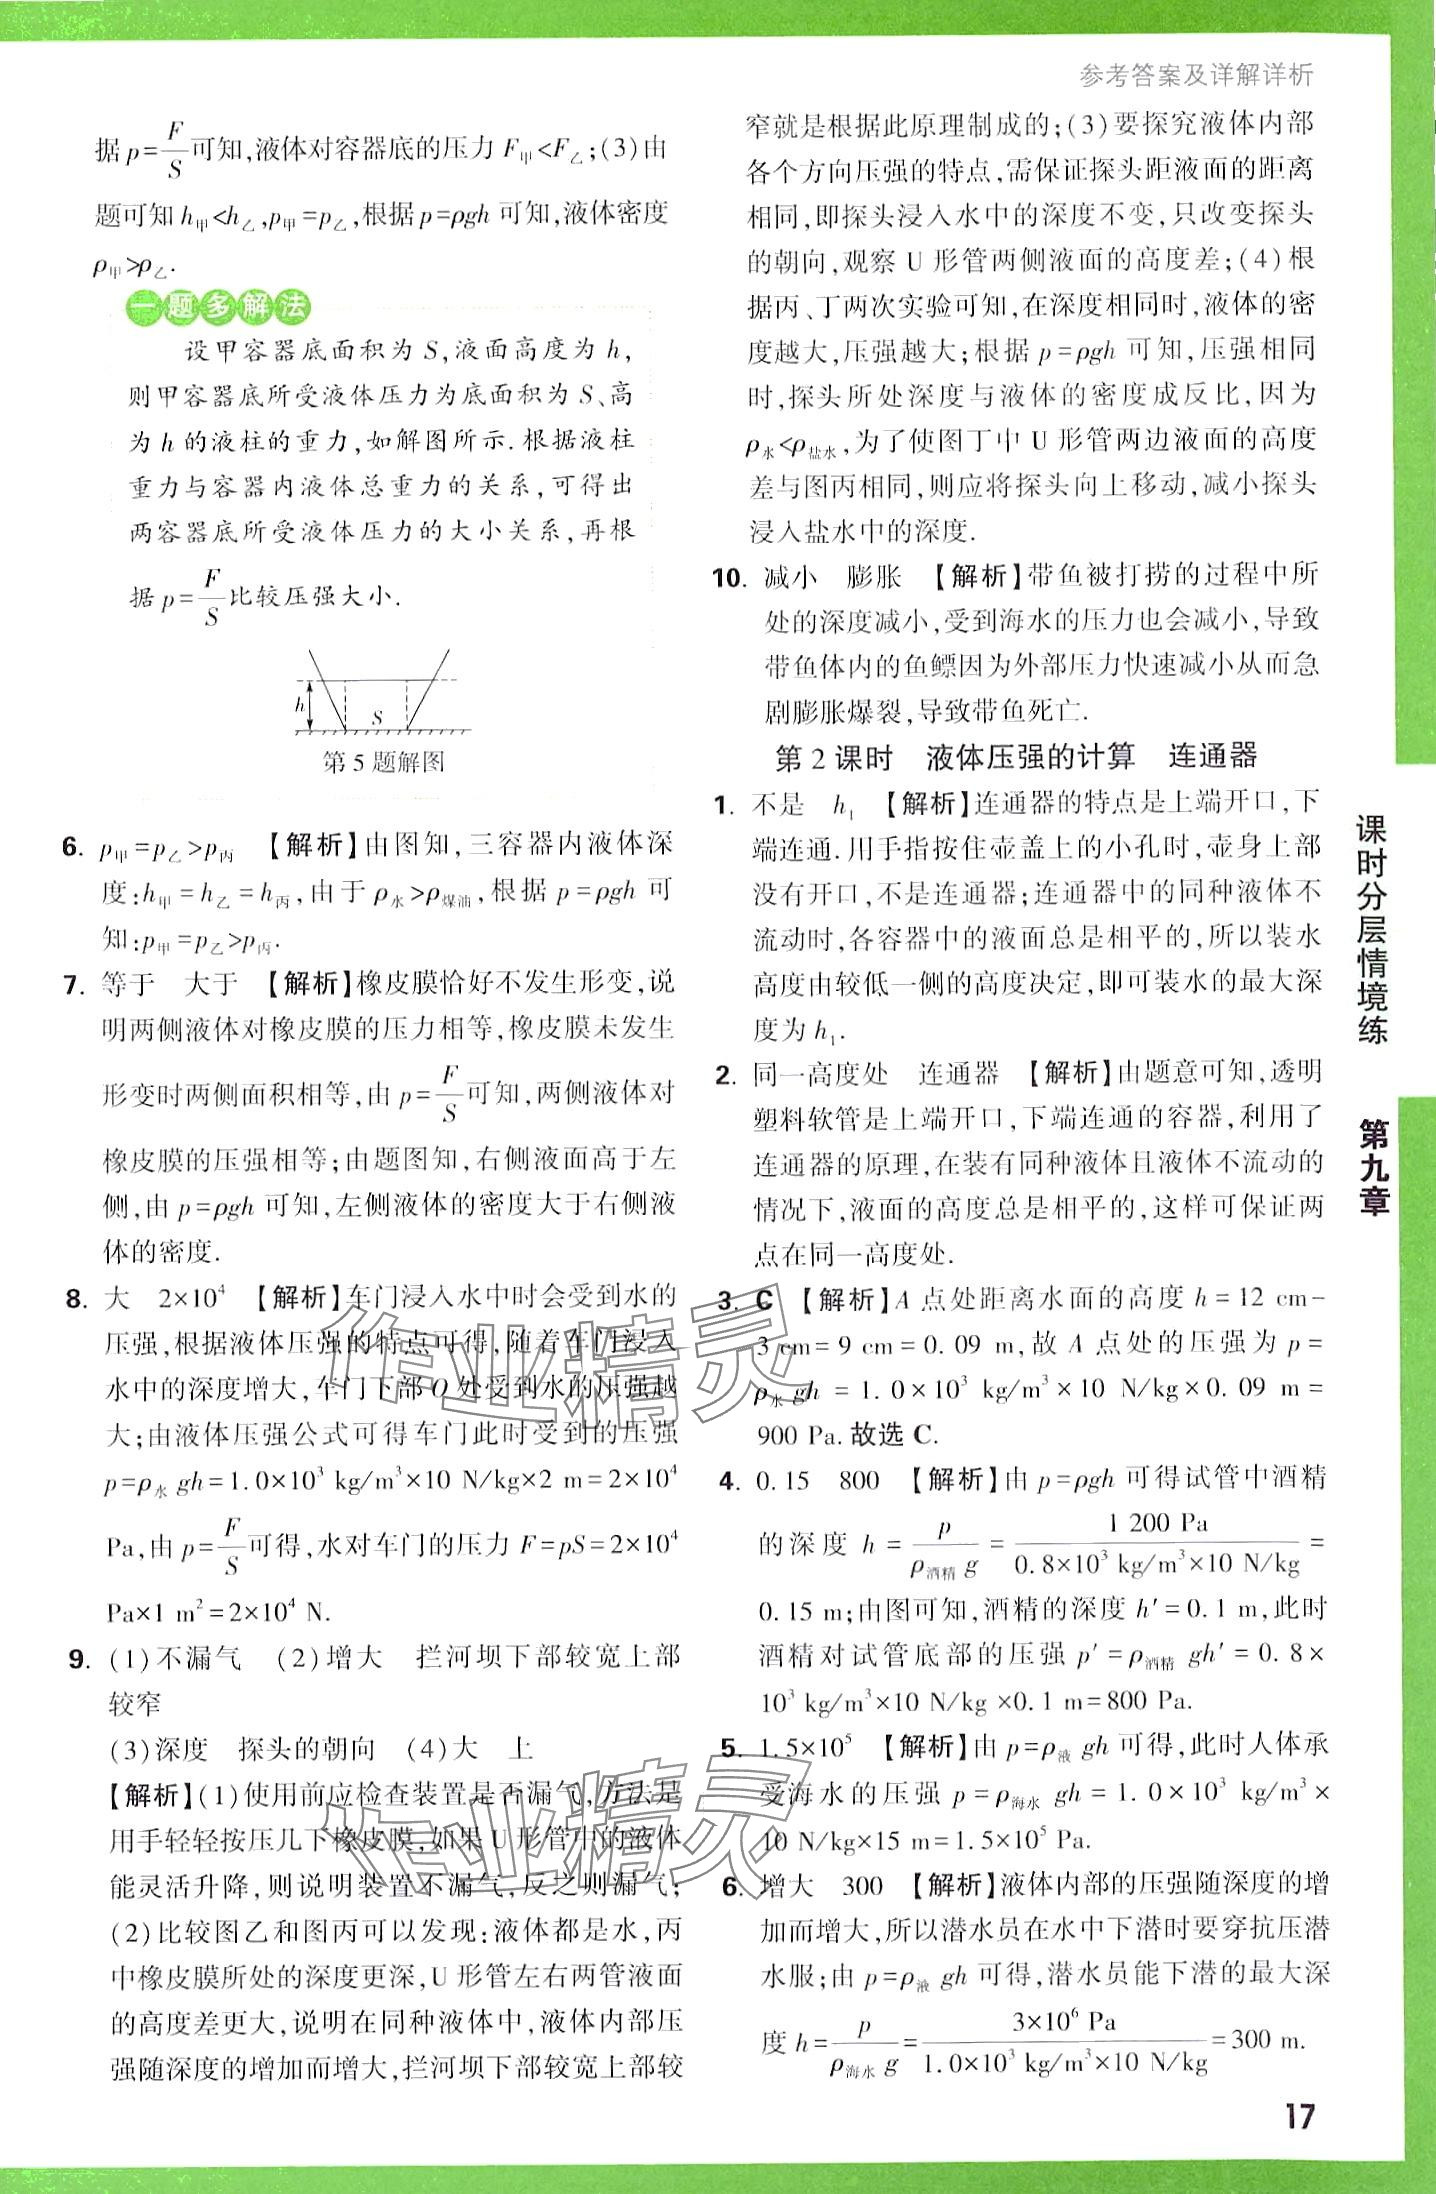 参考答案及详解详析
据 p=F/S 可知,液体对容器底的压力 F甲<F乙;(3)由
题可知 h甲<h乙,p甲=p乙,根据 p=ρgh 可知,液体密度
ρ甲>ρ乙.
一题多解法
设甲容器底面积为 S,液面高度为 h,
则甲容器底所受液体压力为底面积为 S、高
为 h 的液柱的重力,如解图所示.根据液柱
重力与容器内液体总重力的关系,可得出
两容器底所受液体压力的大小关系,再根
据 p=F/S 比较压强大小.
h
S
第 5 题解图
6. p甲=p乙>p丙 【解析】由图知,三容器内液体深
度:h甲=h乙=h丙,由于 ρ水>ρ煤油,根据 p=ρgh 可
知:p甲=p乙>p丙.
7. 等于 大于 【解析】橡皮膜恰好不发生形变,说
明两侧液体对橡皮膜的压力相等,橡皮膜未发生
形变时两侧面积相等,由 p=F/S 可知,两侧液体对
橡皮膜的压强相等;由题图知,右侧液面高于左
侧,由 p=ρgh 可知,左侧液体的密度大于右侧液
体的密度.
8. 大 2×10⁴ 【解析】车门浸入水中时会受到水的
压强,根据液体压强的特点可得,随着车门浸入
水中的深度增大,车门下部 O 处受到水的压强越
大;由液体压强公式可得车门此时受到的压强
p=ρ水 gh=1.0×10³ kg/m³×10 N/kg×2 m=2×10⁴
Pa,由 p=F/S 可得,水对车门的压力 F=pS=2×10⁴
Pa×1 m²=2×10⁴ N.
9. (1)不漏气 (2)增大 拦河坝下部较宽上部
较窄
(3)深度 探头的朝向 (4)大 上
【解析】(1)使用前应检查装置是否漏气,方法是
用手轻轻按压几下橡皮膜,如果 U 形管中的液体
能灵活升降,则说明装置不漏气,反之则漏气;
(2)比较图乙和图丙可以发现:液体都是水,丙
中橡皮膜所处的深度更深,U 形管左右两管液面
的高度差更大,说明在同种液体中,液体内部压
强随深度的增加而增大,拦河坝下部较宽上部较
窄就是根据此原理制成的;(3)要探究液体内部
各个方向压强的特点,需保证探头距液面的距离
相同,即探头浸入水中的深度不变,只改变探头
的朝向,观察 U 形管两侧液面的高度差;(4)根
据丙、丁两次实验可知,在深度相同时,液体的密
度越大,压强越大;根据 p=ρgh 可知,压强相同
时,探头所处深度与液体的密度成反比,因为
ρ水<ρ盐水,为了使图丁中 U 形管两边液面的高度
差与图丙相同,则应将探头向上移动,减小探头
浸入盐水中的深度.
10. 减小 膨胀 【解析】带鱼被打捞的过程中所
处的深度减小,受到海水的压力也会减小,导致
带鱼体内的鱼鳔因为外部压力快速减小从而急
剧膨胀爆裂,导致带鱼死亡.
第 2 课时 液体压强的计算 连通器
1. 不是 h₁ 【解析】连通器的特点是上端开口,下
端连通.用手指按住壶盖上的小孔时,壶身上部
没有开口,不是连通器;连通器中的同种液体不
流动时,各容器中的液面总是相平的,所以装水
高度由较低一侧的高度决定,即可装水的最大深
度为 h₁.
2. 同一高度处 连通器 【解析】由题意可知,透明
塑料软管是上端开口,下端连通的容器,利用了
连通器的原理,在装有同种液体且液体不流动的
情况下,液面的高度总是相平的,这样可保证两
点在同一高度处.
3. C 【解析】A 点处距离水面的高度 h=12 cm-
3 cm=9 cm=0.09 m,故 A 点处的压强为 p=
ρ水 gh=1.0×10³ kg/m³×10 N/kg×0.09 m=
900 Pa.故选 C.
4. 0.15 800 【解析】由 p=ρgh 可得试管中酒精
的深度 h=p/(ρ酒精 g)=1 200 Pa/(0.8×10³ kg/m³×10 N/kg)=
0.15 m;由图可知,酒精的深度 h′=0.1 m,此时
酒精对试管底部的压强 p′=ρ酒精 gh′=0.8×
10³ kg/m³×10 N/kg×0.1 m=800 Pa.
5. 1.5×10⁵ 【解析】由 p=ρ液 gh 可得,此时人体承
受海水的压强 p=ρ海水 gh=1.0×10³ kg/m³×
10 N/kg×15 m=1.5×10⁵ Pa.
6. 增大 300 【解析】液体内部的压强随深度的增
加而增大,所以潜水员在水中下潜时要穿抗压潜
水服;由 p=ρ液 gh 可得,潜水员能下潜的最大深
度 h=p/(ρ海水 g)=3×10⁶ Pa/(1.0×10³ kg/m³×10 N/kg)=300 m.
课时分层情境练 第九章
17
作业精灵
作业精灵